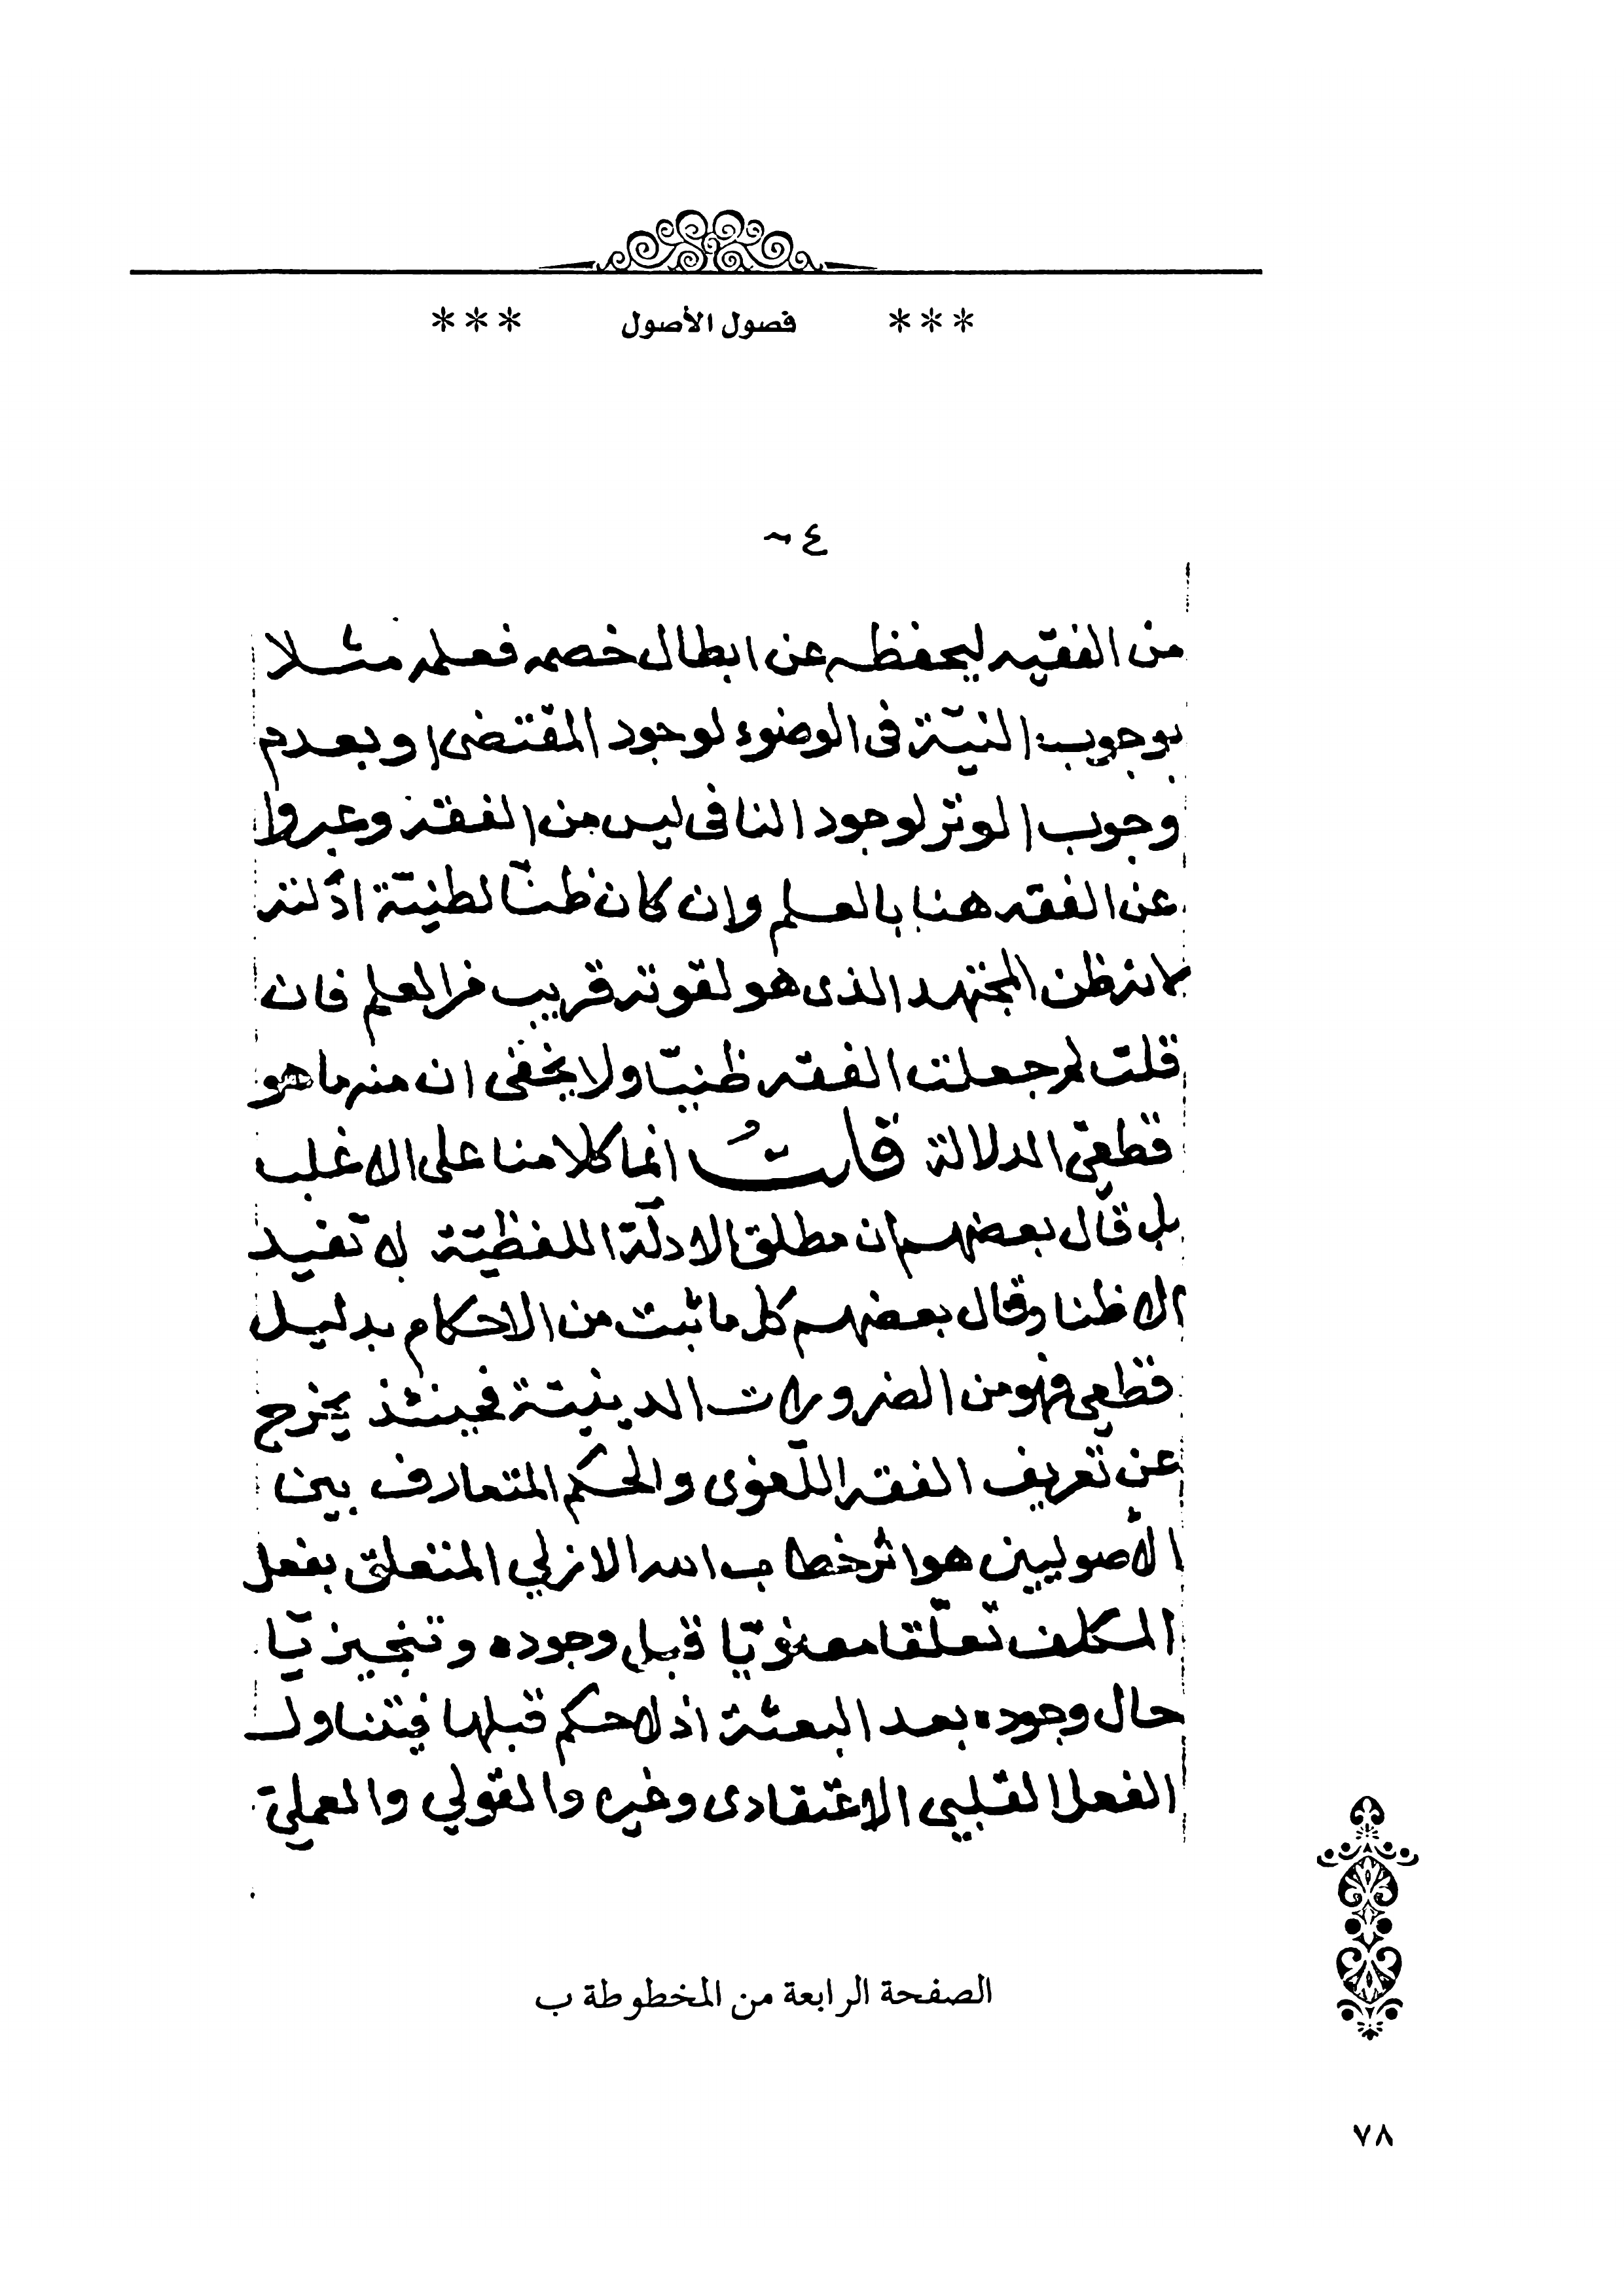 *** فصول الأصول ***
~ ٤
من الفقيه ليحفظه عن ابطال خصمه فعلمه مثلا
بوجوب النيّة فى الوضوء لوجود المقتضى او بعدم
وجوب الوتر لوجود النافى ليس من الفقه وعبروا
عن الفقه هنا بالعلم وإن كان ظنّا لظنيّة ادّلته
لانه ظن المجتهد الذى هو لقوته قريب من العلم فان
قلت لم جعلت الفقه ظنيّا ولا يخفى ان منه ما هو
قطعيّ الدلالة قلتُ انما كلامنا على الاغلب
بل قال بعضهم ان مطلق الادلّة اللفظيّة لا تفيد
الا ظنا وقال بعضهم كل ما ثبت من الاحكام بدليل
قطعي فهو من الضرورات الدينيّة فحينئذ يخرج
عن تعريف الفقه اللّغوى والحكم المتعارف بين
الأصوليين هو اثر خطاب الله الازلي المتعلق بفعل
المكلف تعلّقا معنويّا قبل وجوده وتنجيزيّا
حال وجوده بعد البعثة اذ لا حكم قبلها فيتناول
الفعل القلبي الاعتقادى وغيره والقولي والعمليّ
الصفحة الرابعة من المخطوطة ب
٧٨